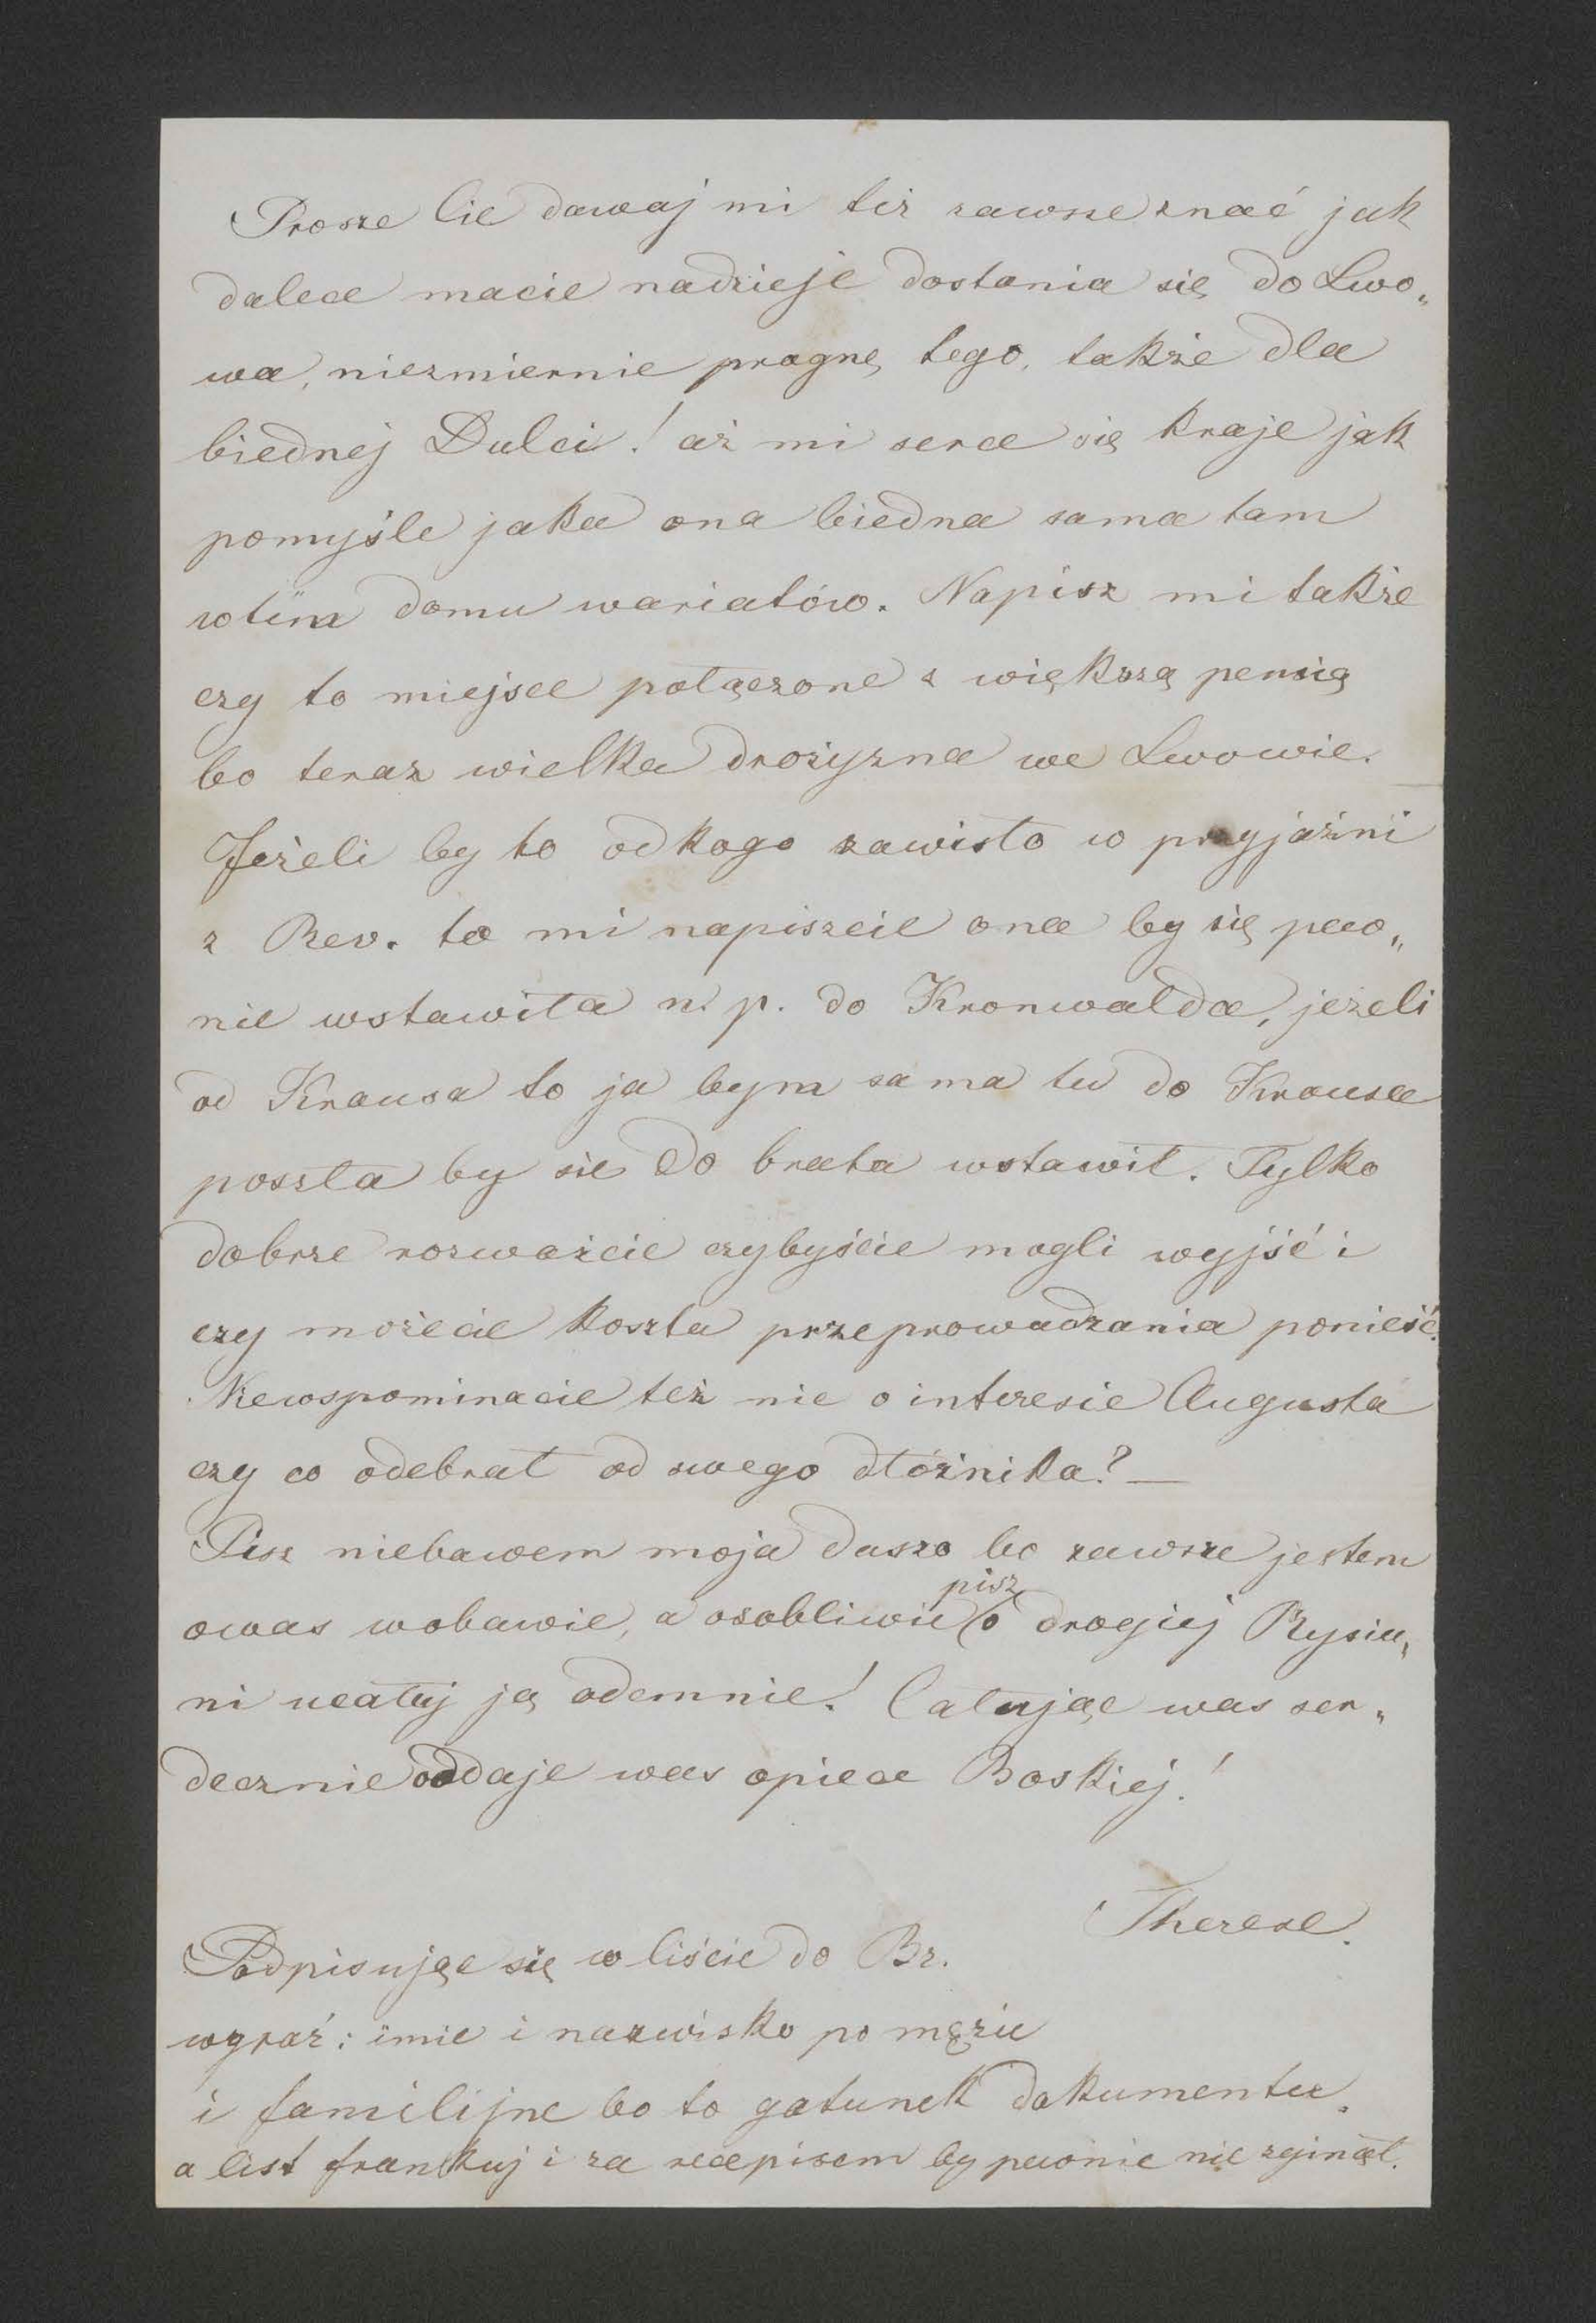 Prosze Cie dawaj mi też zawsze znać jak
dalece macie nadzieje dostania się do Lwo„
wa, niezmiernie pragnę tego, także dla
biednej Dulci! aż mi serce się kraje jak
pomyśle jaka ona biedna sama tam
wtim domu wariatów. Napisz mi także
czy to miejsce połączone z większą pensią
bo teraz wielka drożyzna we Lwowie.
Jeżeli by to od kogo zawisło w przyjaźni
z Rev. to mi napiszcie ona by się pew„
nie wstawiła n. p. do Kronwalda, jeżeli
od Krausa to ja bym sama tu do Krausa
poszła by sie do brata wstawił. Tylko
dobrze rozważcie czybyście mogli wyjść i
czy możecie koszta przeprowadzania ponieść.
Niewspominacie też nic o interesie Augusta
czy co odebrał od swego dłóżnika? —
Pisz niebawem moja duszo bo zawsze jestem
owas wobawie, a osobliwie pisz o drogiej Rysiu„
ni ucałuj ją odemnie! Całując was ser„
decznie oddaje was opiece Boskiej!
Therese.
Podpisując się w liście do Br.
wyraź: imie i nazwisko po mężu
i familijne bo to gatunek dokumentu,
a list frankuj i za recepisem by pewnie nie zginął.